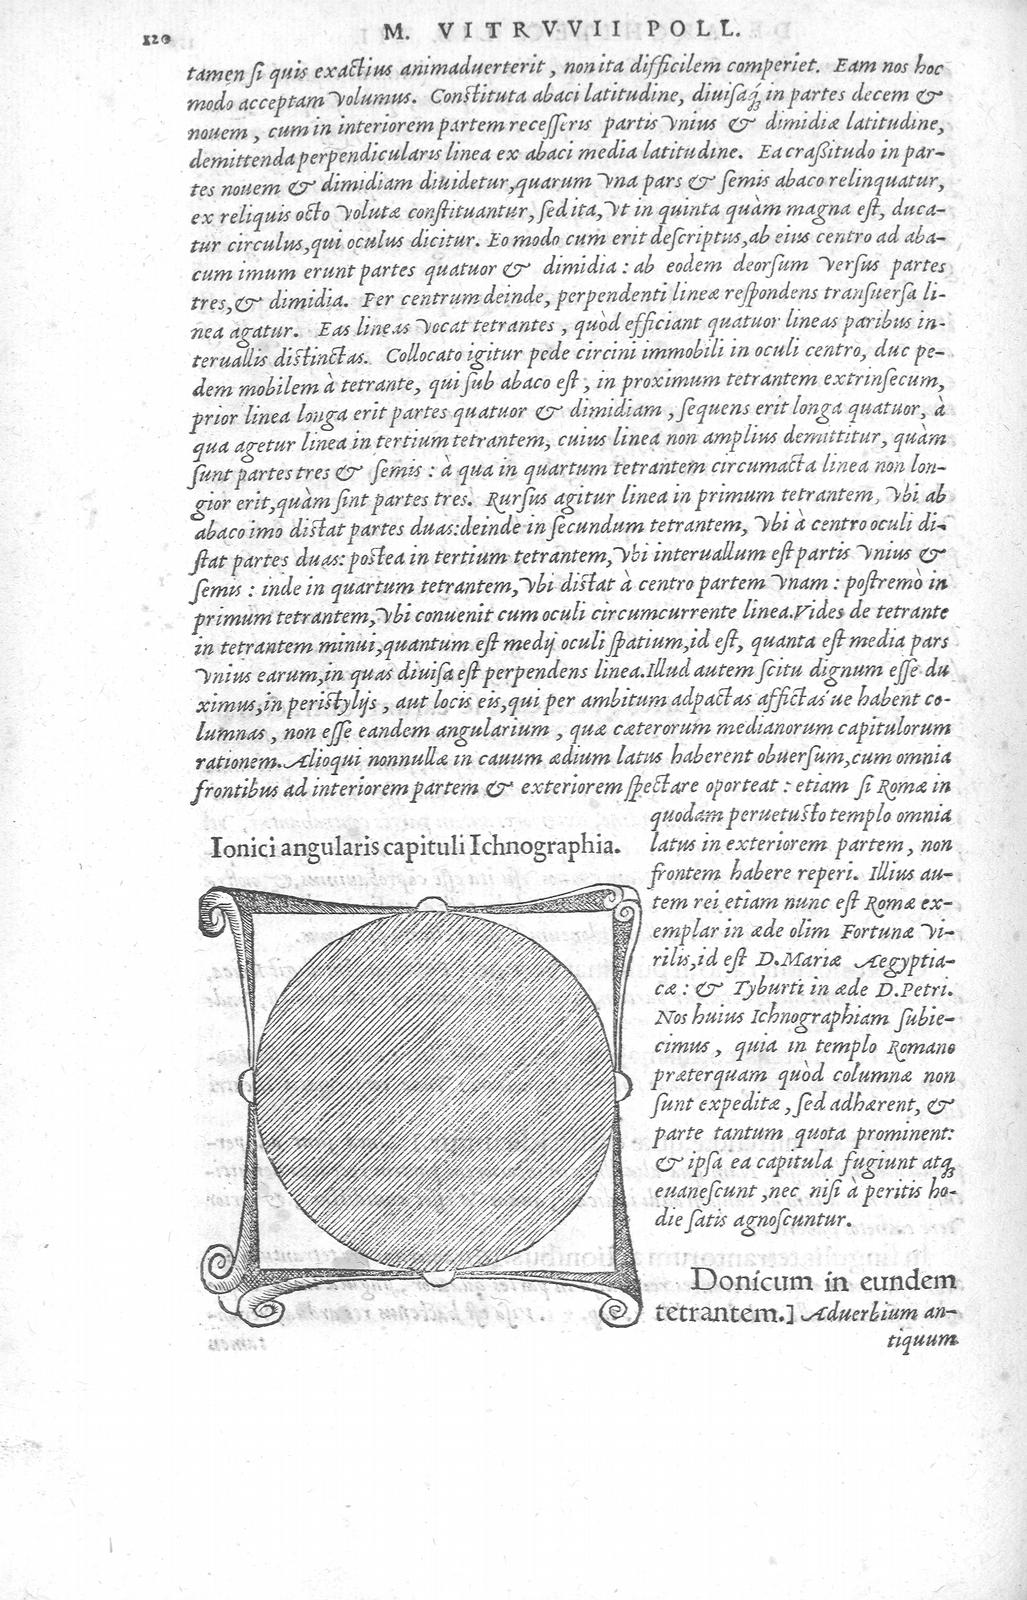 120
M. VITRVVII POLL.
tamen si quis exactius animaduerterit, non ita difficilem comperiet. Eam nos hoc
modo acceptam volumus. Constituta abaci latitudine, diuisaq́; in partes decem &
nouem, cum in interiorem partem recesseris partis vnius & dimidiæ latitudine,
demittenda perpendicularis linea ex abaci media latitudine. Ea craßitudo in par-
tes nouem & dimidiam diuidetur, quarum vna pars & semis abaco relinquatur,
ex reliquis octo volutæ constituantur, sed ita, vt in quinta quàm magna est, duca-
tur circulus, qui oculus dicitur. Eo modo cum erit descriptus, ab eius centro ad aba-
cum imum erunt partes quatuor & dimidia: ab eodem deorsum versus partes
tres, & dimidia. Per centrum deinde, perpendenti lineæ respondens transuersa li-
nea agatur. Eas lineas vocat tetrantes, quòd efficiant quatuor lineas paribus in-
teruallis distinctas. Collocato igitur pede circini immobili in oculi centro, duc pe-
dem mobilem à tetrante, qui sub abaco est, in proximum tetrantem extrinsecum,
prior linea longa erit partes quatuor & dimidiam, sequens erit longa quatuor, à
qua agetur linea in tertium tetrantem, cuius linea non amplius demittitur, quàm
sunt partes tres & semis: à qua in quartum tetrantem circumacta linea non lon-
gior erit, quàm sint partes tres. Rursus agitur linea in primum tetrantem, vbi ab
abaco imo distat partes duas: deinde in secundum tetrantem, vbi à centro oculi di-
stat partes duas: postea in tertium tetrantem, vbi interuallum est partis vnius &
semis: inde in quartum tetrantem, vbi distat à centro partem vnam: postremò in
primum tetrantem, vbi conuenit cum oculi circumcurrente linea. Vides de tetrante
in tetrantem minui, quantum est medij oculi spatium, id est, quanta est media pars
vnius earum, in quas diuisa est perpendens linea. Illud autem scitu dignum esse du
ximus, in peristylijs, aut locis eis, qui per ambitum adpactas affictas ue habent co-
lumnas, non esse eandem angularium, quæ cæterorum medianorum capitulorum
rationem. Alioqui nonnullæ in cauum ædium latus haberent obuersum, cum omnia
frontibus ad interiorem partem & exteriorem spectare oporteat: etiam si Romæ in
quodam peruetusto templo omnia
latus in exteriorem partem, non
frontem habere reperi. Illius au-
tem rei etiam nunc est Romæ ex-
emplar in æde olim Fortunæ vi-
rilis, id est D. Mariæ Aegyptia-
cæ: & Tyburti in æde D. Petri.
Nos huius Ichnographiam subie-
cimus, quia in templo Romano
præterquam quòd columnæ non
sunt expeditæ, sed adhærent, &
parte tantum quota prominent:
& ipsa ea capitula fugiunt atq;
euanescunt, nec nisi à peritis ho-
die satis agnoscuntur.
Ionici angularis capituli Ichnographia.
Donicum in eundem
tetrantem.] Aduerbium an-
tiquum